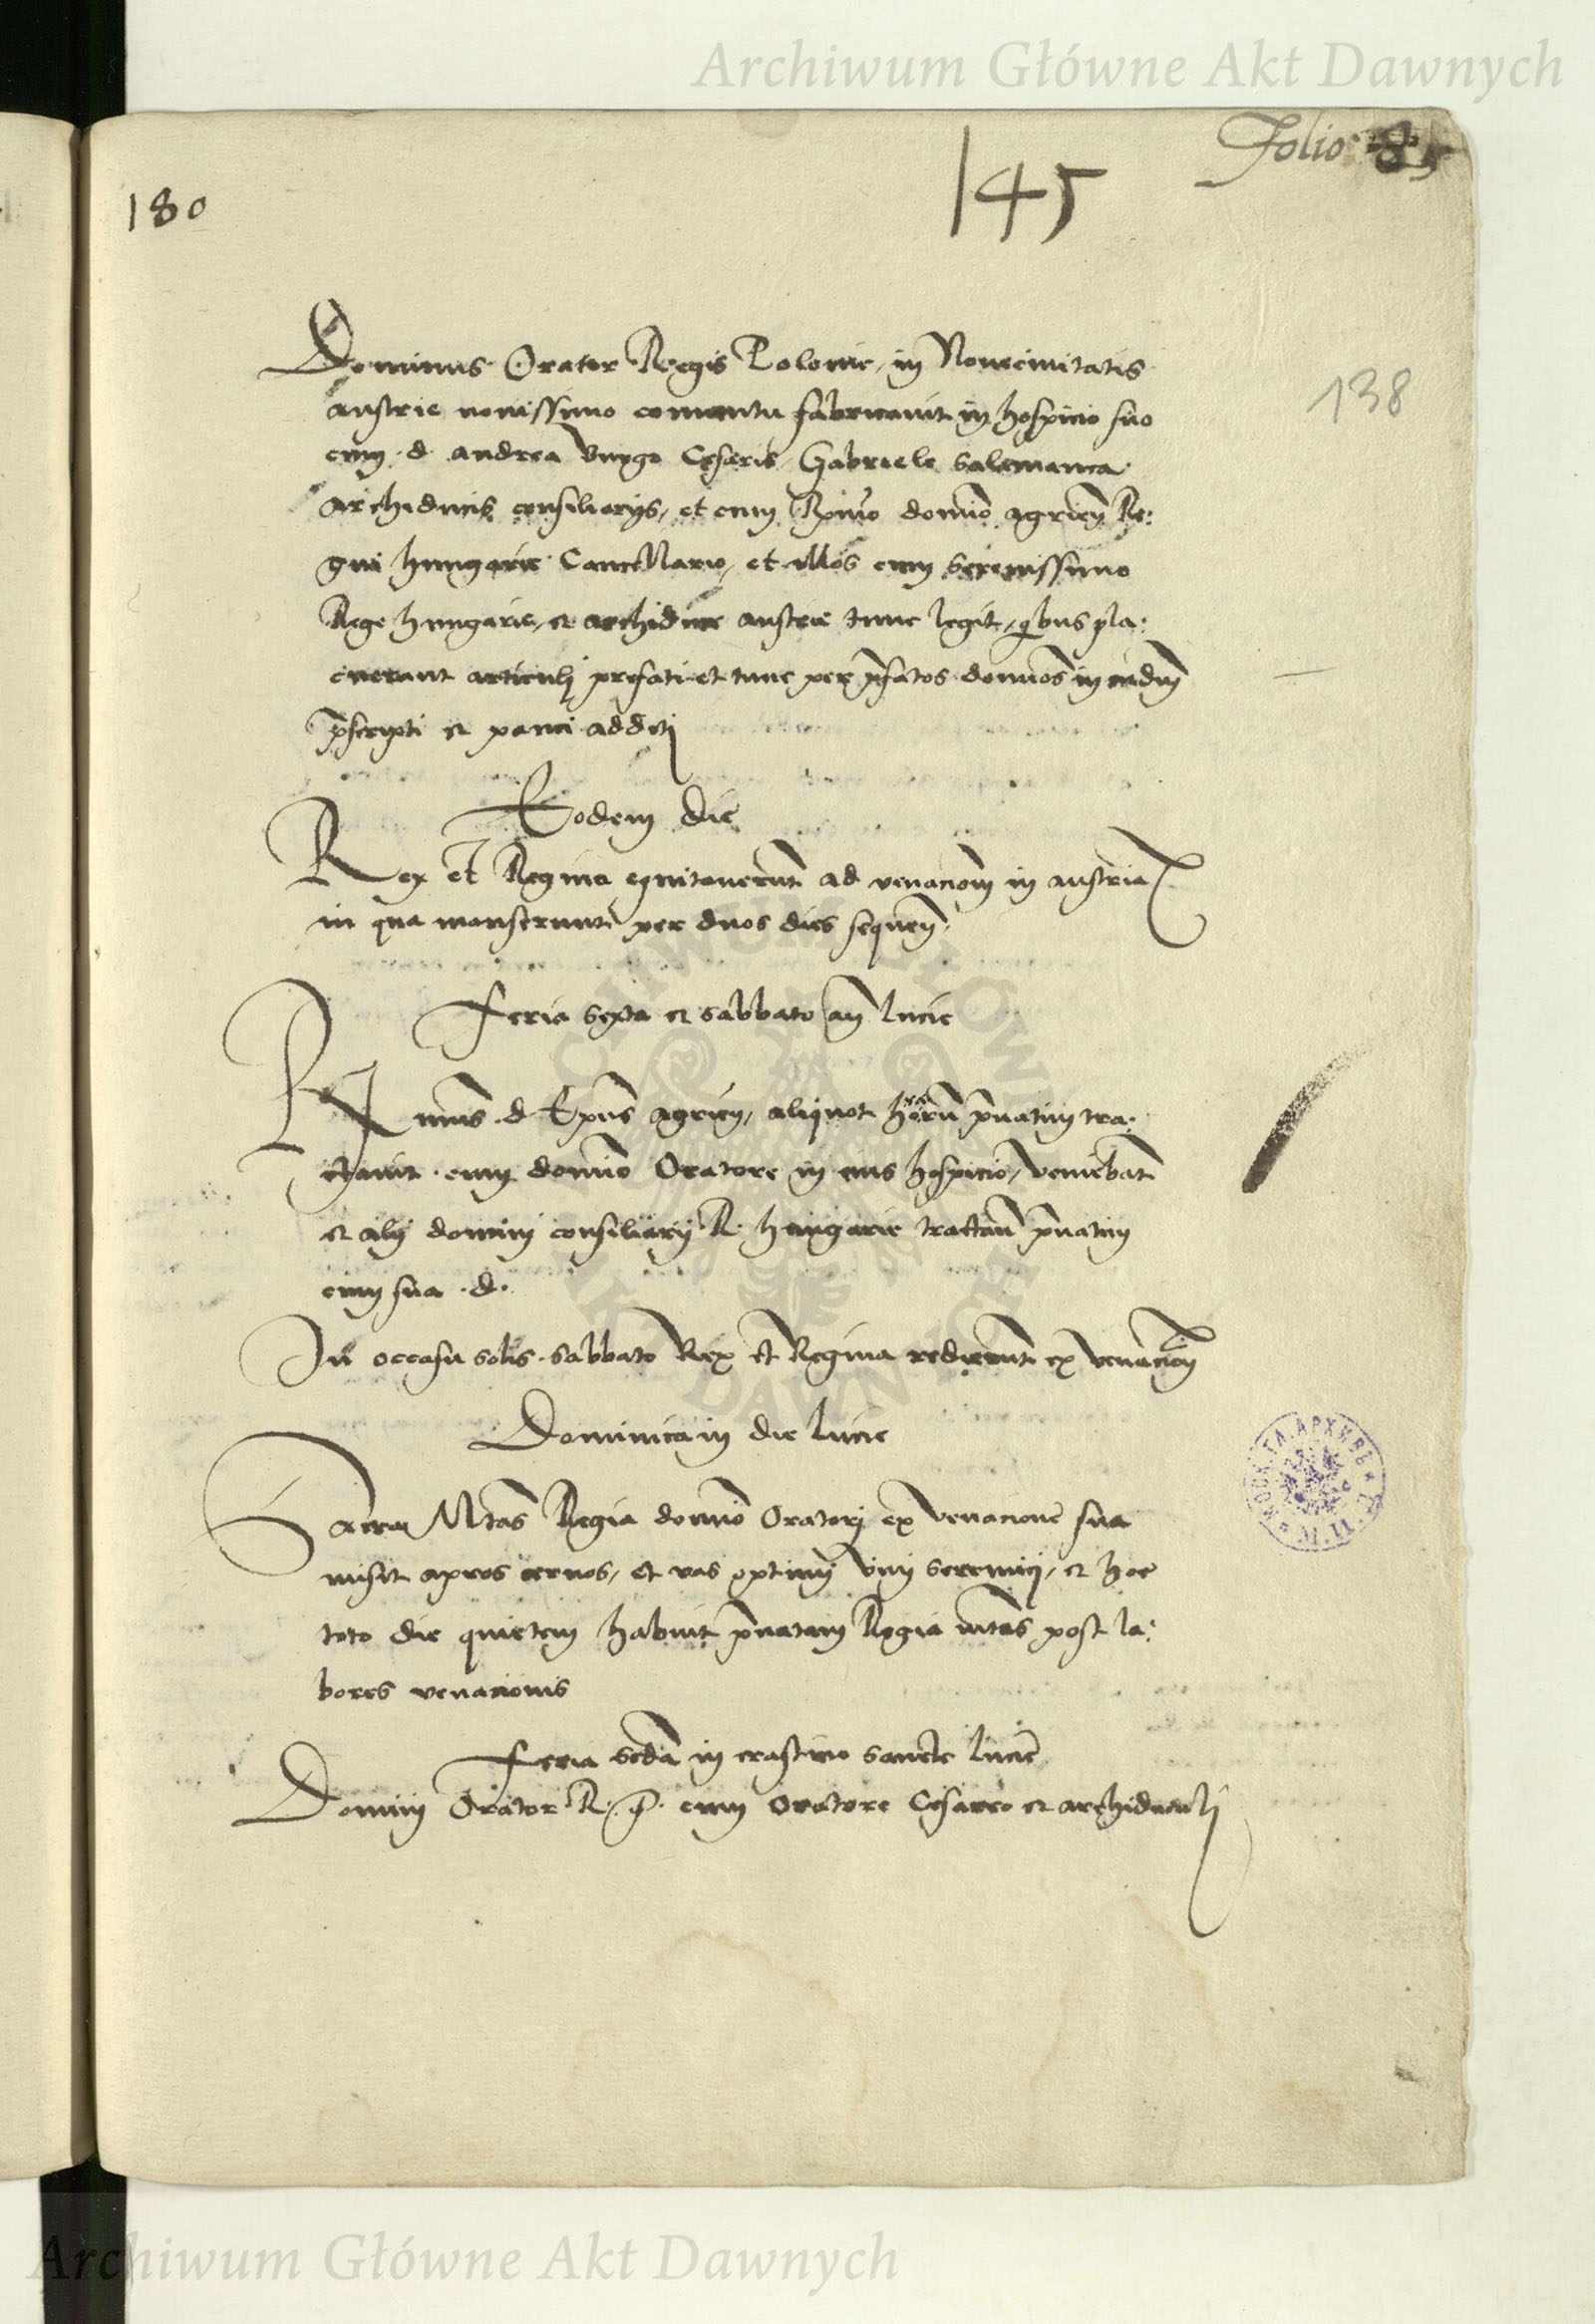 Archiwum Główne Akt Dawnych
Folio 85
180
145
138
Dominus Orator Regis Polonię, in Nouecivitatis
austrie novissimo conventu fabricavit in hospicio suo
cum d. andrea Burgo Cesaris, Gabriele Salamanca
archiducis consiliarijs, et cum Rmo domino agrien Re:
gni hungarie Cancellario, et illos cum Serenissimo
Rege hungarie, et archiduce austrie tunc legit, quibus pla:
cuerant articuli prefati et tunc per prefatos dominos in eadem
prescripti et pauci additi
Eodem die
Rex et Regina equitaverunt ad venacionem in austria
in qua manserunt per duos dies sequen
Feria Sexta et Sabbato an Lucie
Rmus d. Epus agrien, aliquot horarum privatim tra:
ctavit cum domino Oratore in eius hospicio, veniebant
et alij domini consiliarij R. hungarie tractan privatim
cum sua d.
In occasu solis Sabbato Rex et Regina redierunt ex venacion
Dominica in die Lucie
Sacra Mtas Regia domino Oratori ex venacione sua
misit apros cervos, et vas optimi vini Seremij, et hoc
toto die quietem habuit privatam Regia mtas post la:
bores venacionis
Feria Scda in crastino Sancte Lucie
Domini Orator R. P. cum Oratore Cesareo et archiducali
Archiwum Główne Akt Dawnych